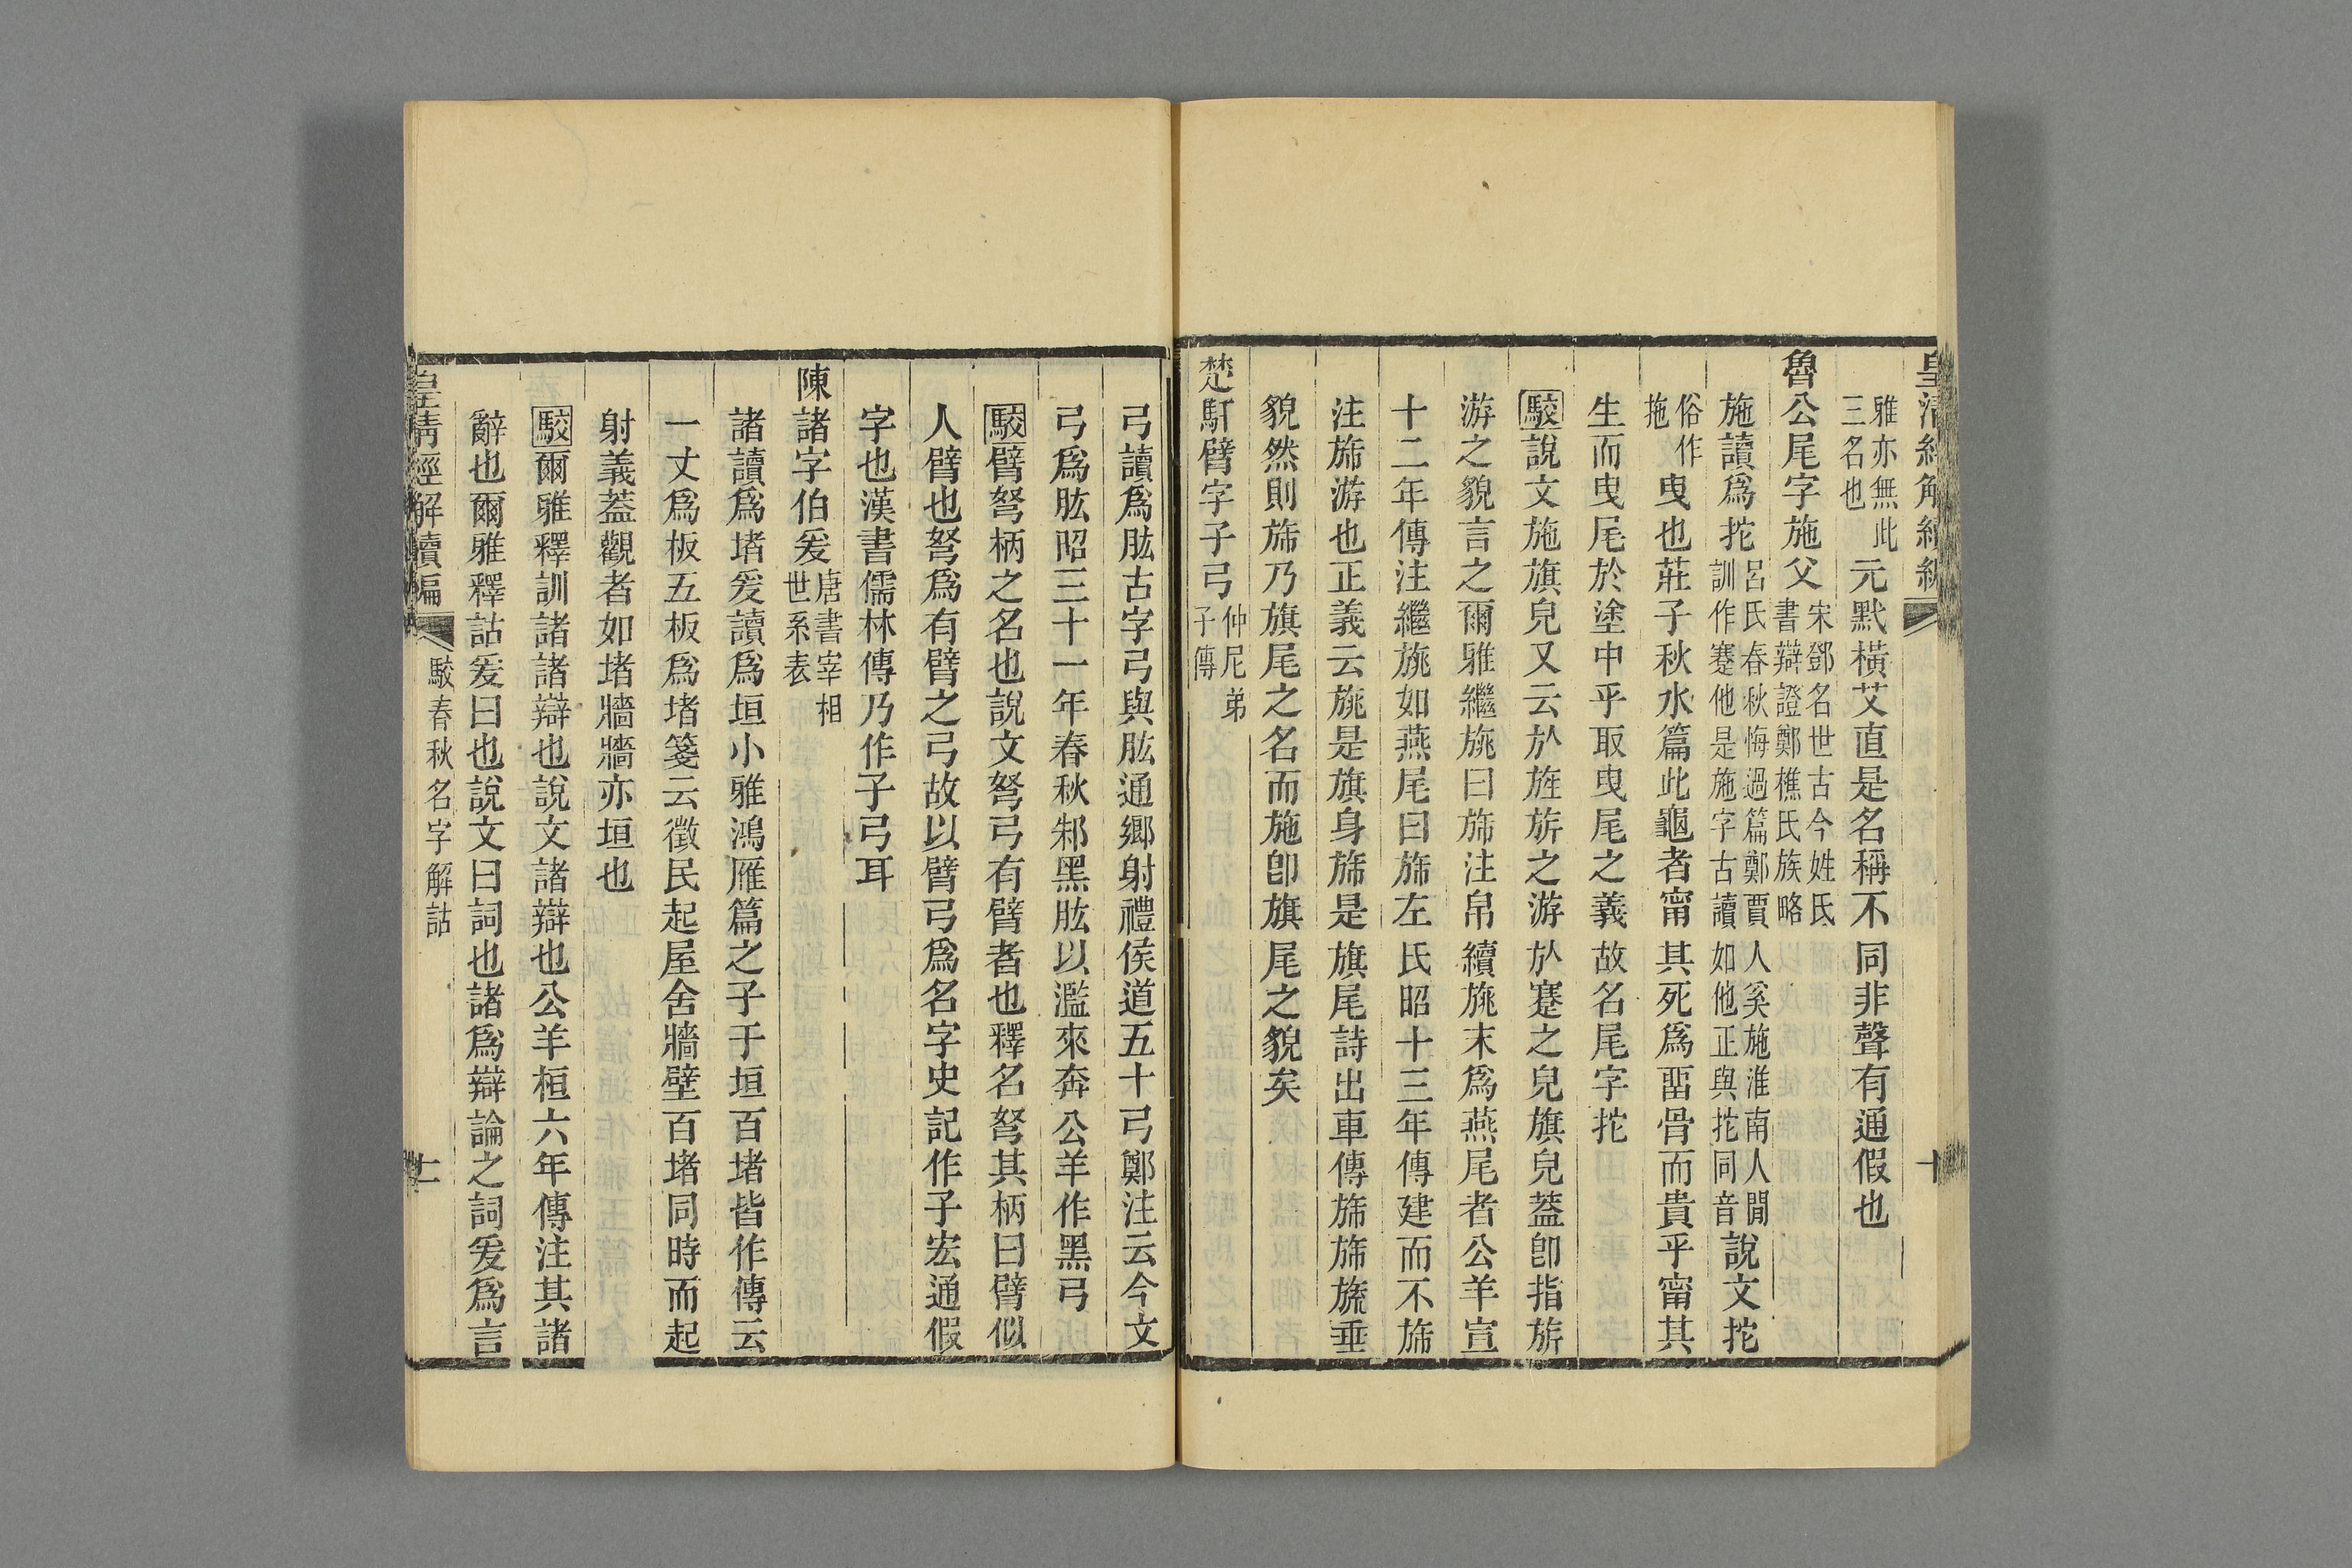 皇清經解續編 十
雅亦無此三名也元默橫艾直是名稱不同非聲有通假也
魯公尾字施父宋鄧名世古今姓氏書辯證鄭樵氏族略
施讀爲拕呂氏春秋悔過篇鄭賈人奚施淮南人閒訓作蹇他是施字古讀如他正與拕同音說文拕
俗作拖曳也莊子秋水篇此龜者甯其死爲畱骨而貴乎甯其
生而曳尾於塗中乎取曳尾之義故名尾字拕
駮說文施旗皃又云㫃旌旂之游㫃蹇之皃旗皃蓋卽指旂
游之貌言之爾雅繼旐曰旆注帛續旐末爲燕尾者公羊宣
十二年傳注繼旐如燕尾曰旆左氏昭十三年傳建而不旆
注旆游也正義云旐是旗身旆是旗尾詩出車傳旆旆旒垂
貌然則旆乃旗尾之名而施卽旗尾之貌矣
楚馯臂字子弓仲尼弟子傳
弓讀爲肱古字弓與肱通鄉射禮侯道五十弓鄭注云今文
弓爲肱昭三十一年春秋邾黑肱以濫來奔公羊作黑弓
駮臂弩柄之名也說文弩弓有臂者也釋名弩其柄曰臂似
人臂也弩爲有臂之弓故以臂弓爲名字史記作子宏通假
字也漢書儒林傳乃作子弓耳
陳諸字伯爰唐書宰相世系表
諸讀爲堵爰讀爲垣小雅鴻雁篇之子于垣百堵皆作傳云
一丈爲板五板爲堵箋云徵民起屋舍牆壁百堵同時而起
射義蓋觀者如堵牆牆亦垣也
駮爾雅釋訓諸諸辯也說文諸辯也公羊桓六年傳注其諸
辭也爾雅釋詁爰曰也說文曰詞也諸爲辯論之詞爰爲言
皇清經解續編 駮春秋名字解詁 十一